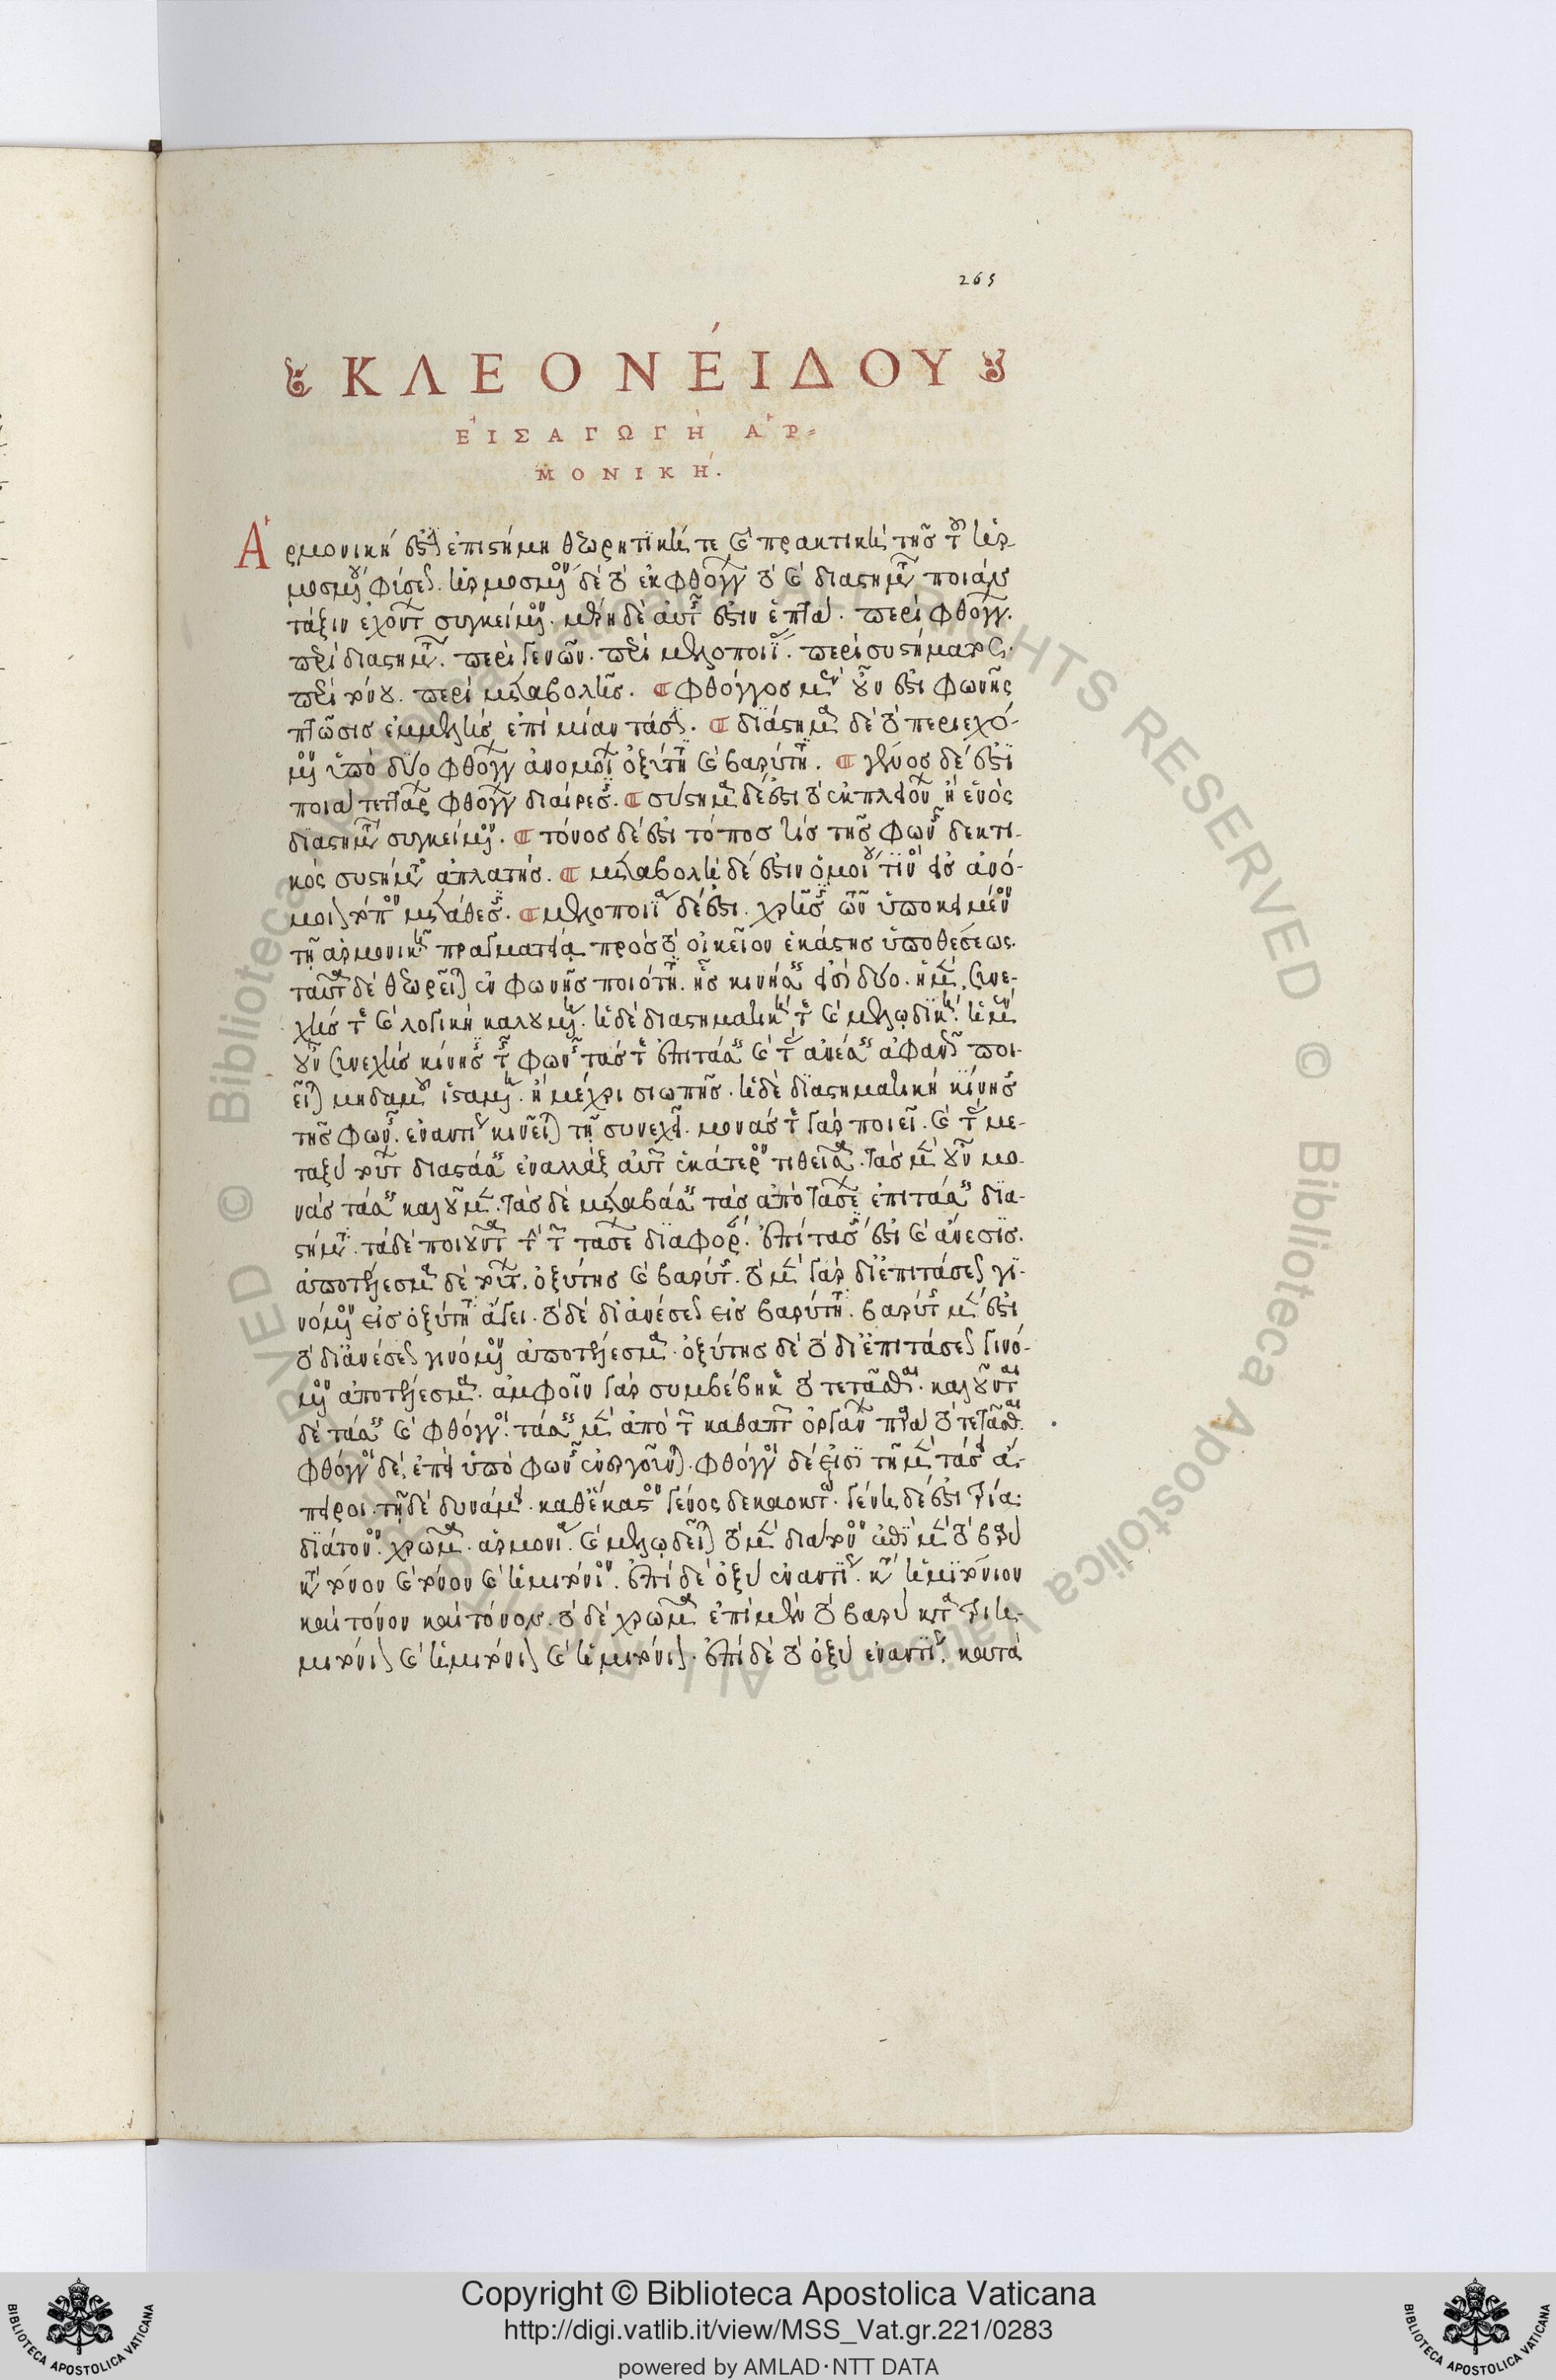 265
ΚΛΕΟΝΕΊΔΟΥ
ΕἸΣΑΓΩΓῊ ἉΡ-
ΜΟΝΙΚΉ.
Ἁρμονική ἐστιν ἐπιστήμη θεωρητική τε καὶ πρακτικὴ τῆς τοῦ ἡρ
μοσμένου φύσεως. ἡρμοσμένον δὲ τὸ ἐκ φθόγγων καὶ διαστημάτων ποιὰν
τάξιν ἐχόντων συγκείμενον. μέρη δὲ αὐτῆς ἐστιν ἑπτά. περὶ φθόγγων.
περὶ διαστημάτων. περὶ γενῶν. περὶ μελοποιίας. περὶ συστήματος.
περὶ τόνου. περὶ μεταβολῆς. φθόγγος μὲν οὖν ἐστι φωνῆς
πτῶσις ἐμμελὴς ἐπὶ μίαν τάσιν. διάστημα δὲ τὸ περιεχό-
μενον ὑπὸ δύο φθόγγων ἀνομοίων ὀξύτητι καὶ βαρύτητι. γένος δέ ἐστι
ποιὰ τεττάρων φθόγγων διαίρεσις. σύστημα δέ ἐστι τὸ ἐκ πλειόνων ἢ ἑνὸς
διαστημάτων συγκείμενον. τόνος δέ ἐστι τόπος τις τῆς φωνῆς δεκτι-
κὸς συστήματος ἀπλατής. μεταβολὴ δέ ἐστιν ὁμοίου τινὸς εἰς ἀνό-
μοιον τόπον μετάθεσις. μελοποιία δέ ἐστι χρῆσις τῶν ὑποκειμένων
τῇ ἁρμονικῇ πραγματείᾳ πρὸς τὸ οἰκεῖον ἑκάστης ὑποθέσεως.
ταῦτα δὲ θεωρεῖται ἐν φωνῆς ποιότητι. ἧς κινήσεις εἰσὶ δύο. ἡ μὲν συνε-
χής τε καὶ λογικὴ καλουμένη. ἡ δὲ διαστηματική τε καὶ μελῳδική. ἡ μὲν
οὖν συνεχὴς κίνησις τῆς φωνῆς τάς τε ἐπιτάσεις καὶ τὰς ἀνέσεις ἀφανῶς ποι-
εῖται μηδαμοῦ ἱσταμένη ἢ μέχρι σιωπῆς. ἡ δὲ διαστηματικὴ κίνησις
τῆς φωνῆς ἐναντίως κινεῖται τῇ συνεχεῖ. μονάς τε γὰρ ποιεῖ. καὶ τὰς με-
ταξὺ τούτων διαστάσεις ἐναλλὰξ αὐτῶν ἑκάτερον τιθεῖσα. τὰς μὲν οὖν μο-
νὰς τάσεις καλοῦμεν. τὰς δὲ μεταβάσεις τὰς ἀπὸ τάσεων ἐπὶ τάσεις δια-
στήματα. τὰ δὲ ποιοῦντα τὴν τῶν τάσεων διαφορὰν. ἐπίτασίς ἐστι καὶ ἄνεσις.
ἀποτέλεσμα δὲ τούτων ὀξύτης καὶ βαρύτης. τὸ μὲν γὰρ δι' ἐπιτάσεως γι-
νόμενον εἰς ὀξύτητα ἄγει. τὸ δὲ δι' ἀνέσεως εἰς βαρύτητα. βαρύτης μέν ἐστι
τὸ δι' ἀνέσεως γινόμενον ἀποτέλεσμα. ὀξύτης δὲ τὸ δι' ἐπιτάσεως γινό-
μενον ἀποτέλεσμα. ἀμφοῖν γὰρ συμβέβηκε τὸ τετάσθαι. καλοῦνται
δὲ τάσεις καὶ φθόγγοι. τάσεις μὲν ἀπὸ τῶν καθαπτῶν ὀργάνων παρὰ τὸ τετάσθαι.
φθόγγοι δέ, ἐπεὶ ὑπὸ φωνῆς ἐνεργοῦνται. φθόγγοι δέ εἰσι τῇ μὲν τάσει ἄ-
πειροι. τῇ δὲ δυνάμει καθ' ἕκαστον γένος δεκαοκτώ. γένη δέ ἐστι τρία:
διάτονον. χρῶμα. ἁρμονία. καὶ μελῳδεῖται τὸ μὲν διάτονον ἐπὶ μὲν τὸ βαρὺ
κατὰ τόνον καὶ τόνον καὶ ἡμιτόνιον. ἐπὶ δὲ ὀξὺ ἐναντίως κατὰ ἡμιτόνιον
καὶ τόνον καὶ τόνον. τὸ δὲ χρῶμα ἐπὶ μὲν τὸ βαρὺ κατὰ τριη-
μιτόνιον καὶ ἡμιτόνιον καὶ ἡμιτόνιον. ἐπὶ δὲ τὸ ὀξὺ ἐναντίως κατὰ
Copyright © Biblioteca Apostolica Vaticana
http://digi.vatlib.it/view/MSS_Vat.gr.221/0283
powered by AMLAD·NTT DATA
BIBLIOTECA APOSTOLICA VATICANA
BIBLIOTECA APOSTOLICA VATICANA